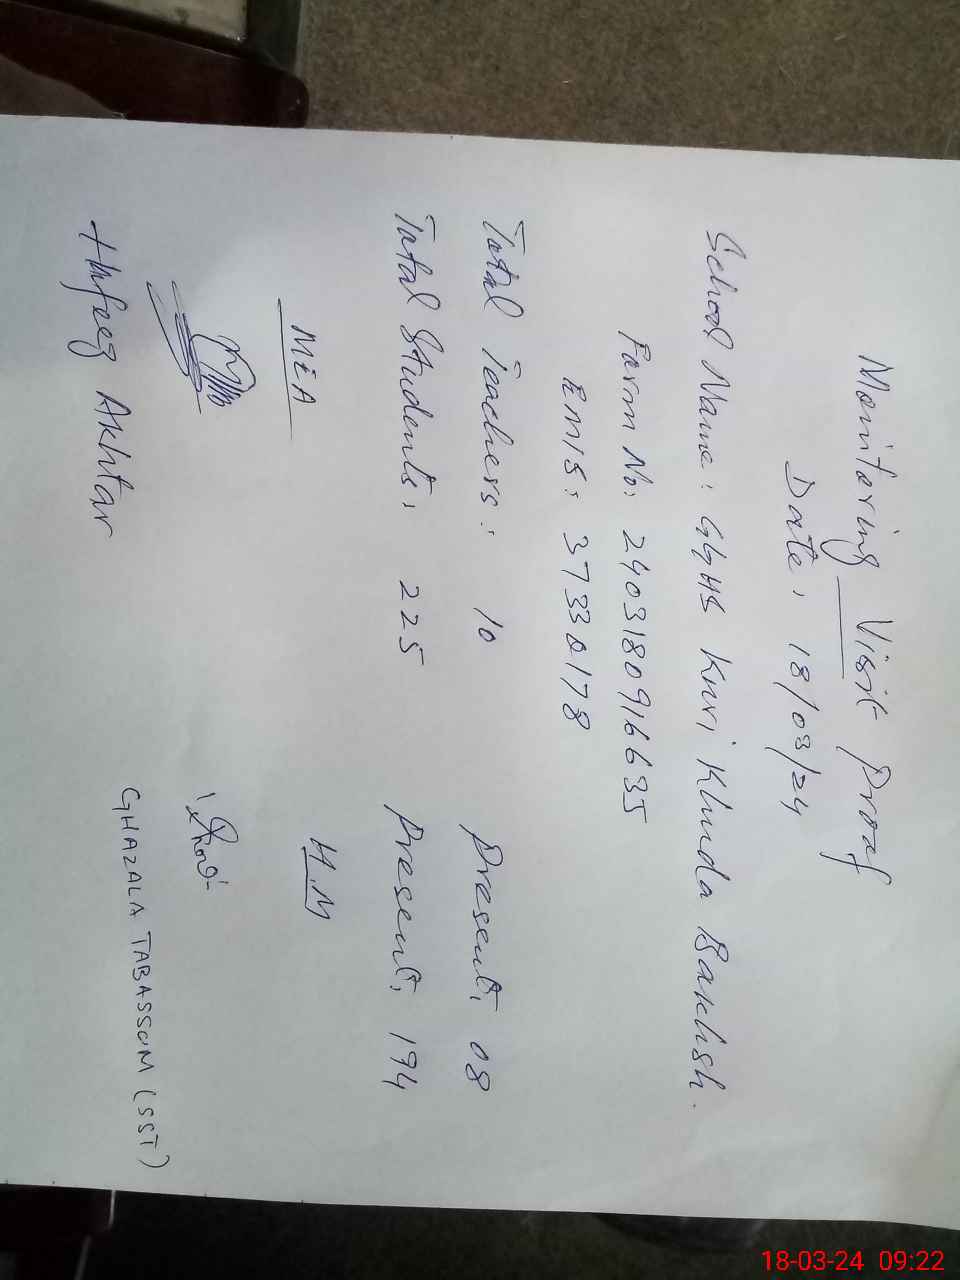 Monitoring Visit Proof
Date: 18/03/24
School Name: GGHS Knri Khuda Bakhsh.
Farm No: 2403180916635
EMIS: 37330178
Total Teachers: 10 Present: 08
Total Students: 225 Present: 194
MEA H.M
Akhtar GHAZALA TABASSUM (SST)
18-03-24 09:22